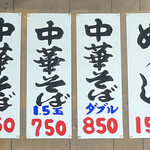 中華そば
50
中華そば
1.5玉
750
中華そば
ダブル
850
めし
15